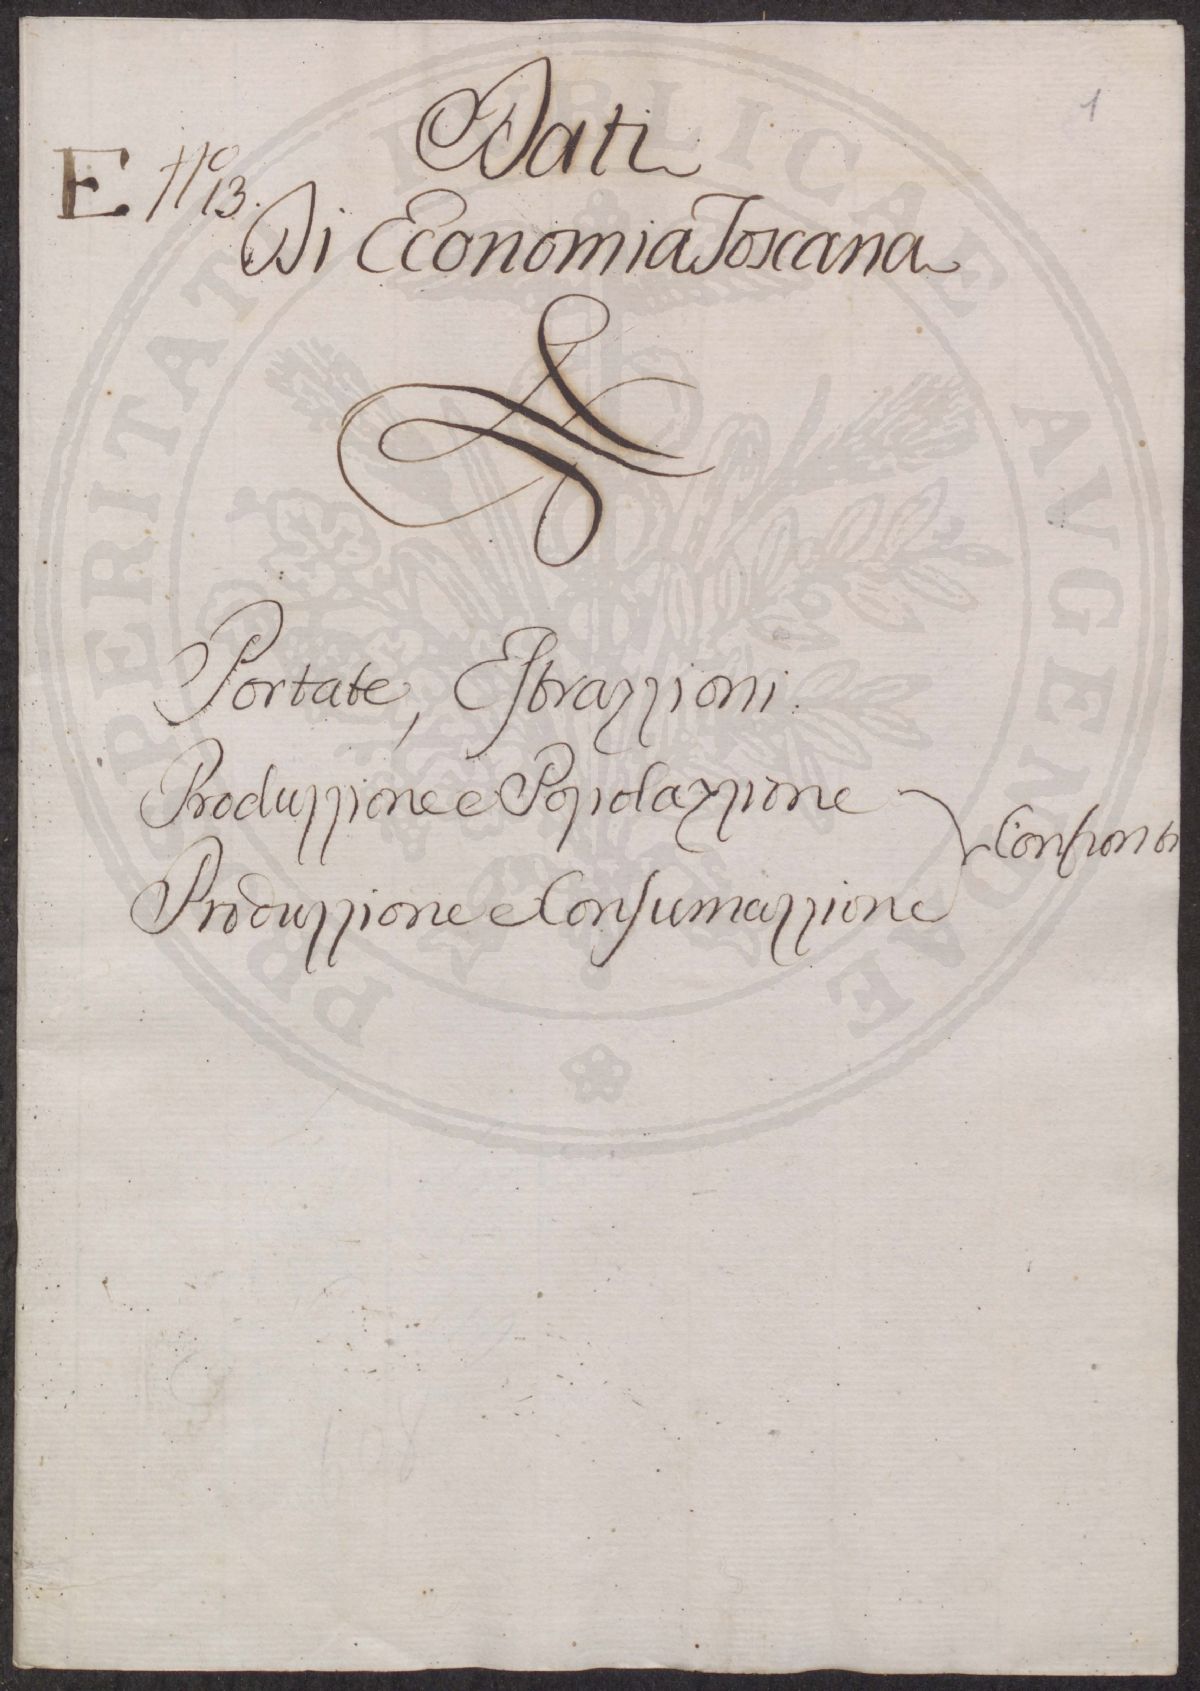 1
Dati
E N.º 13.
Di Economia Toscana
Portate, Estrazzioni.
Produzzione e Popolazzione
Confronti
Produzzione e Consumazzione
PROSPERITATI PUBLICAE AUGENDAE